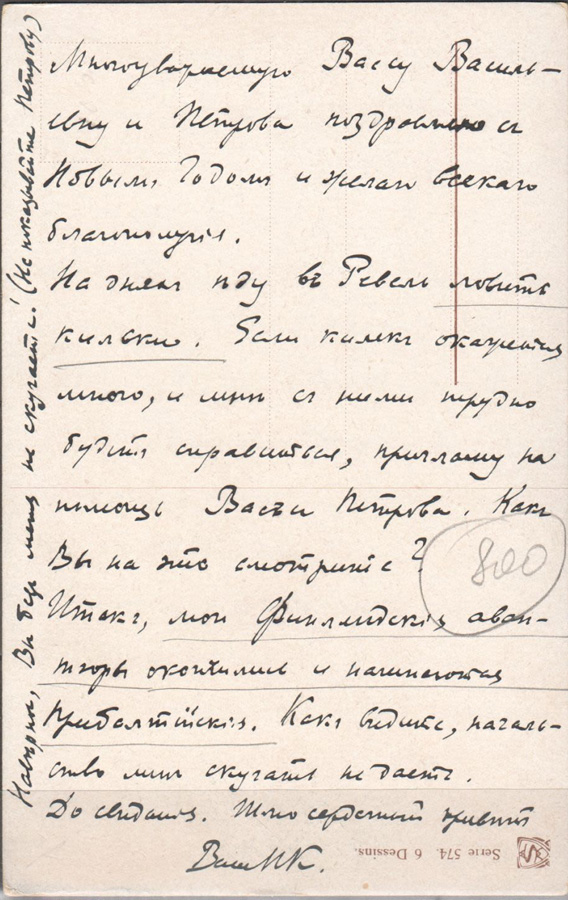 Многоуважаемую Вассу Василь-
евну и Петрова поздравляю съ
Новымъ Годомъ и желаю всякаго
благополучiя.
На дняхъ иду въ Ревель ловить
кильки. Если килекъ окажется
много, и мнѣ съ ними трудно
будетъ справиться, пришлю на
помощь Васъ и Петрова. Какъ
Вы на это смотрите?
Итакъ, мои Финляндскiя аван-
тюры окончились и начинаются
Прибалтiйскiя. Какъ видите, началь-
ство мнѣ скучать не даетъ.
До свиданiя. Шлю сердечный привѣтъ
Ваш МК.
Навѣрно, Вы безъ меня не скучаете! (Не показывайте Петрову)
800
Serie 574. 6 Dessins.